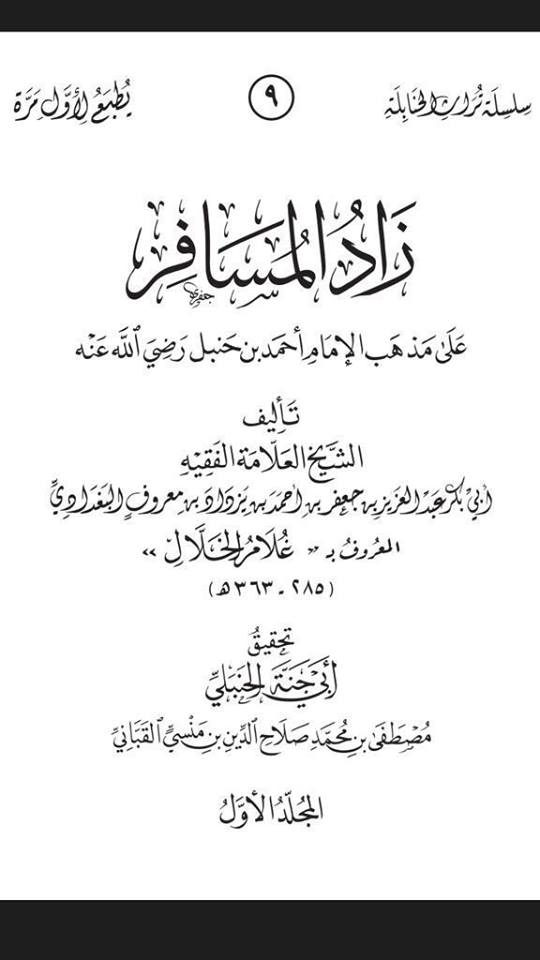 سِلسِلَة تُرَاثِ الحَنَابِلَةِ
٩
يُطْبَعُ لِأَوَّلِ مَرَّة
زَادُ المُسَافِرِ
جعفري
عَلَىٰ مَذهَب الإمَامِ أحمَد بن حَنبل رَضِيَ ٱللَّه عَنه
تَأليف
الشَّيخ العَلّامَة الفَقِيهِ
أبي بَكر عَبْد العَزيز بن جَعفر بن أحمَد بن يَزدَاد بن مَعروفٍ البَغدَاديِّ
المعرُوفُ بـ « غُلَامُ الخَلَّالِ »
(٢٨٥ - ٣٦٣ هـ)
تحقيقُ
أَبي جَنَّةَ الحَنبَليِّ
مُصْطَفَىٰ بنِ مُحمَّد صَلَاحِ ٱلدِّينِ بنِ مَنْسيِّ القَبَّانيِّ
المُجلّدُ الأوَّلُ